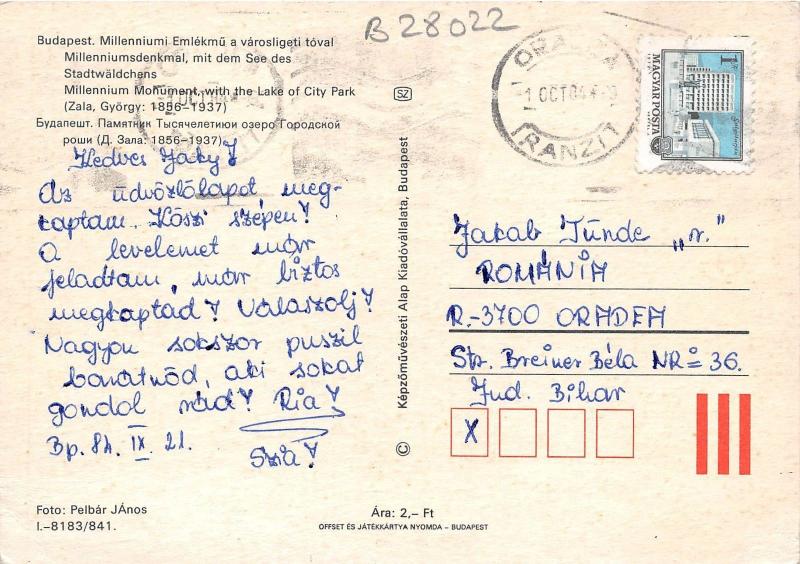 B 28022
Budapest. Millenniumi Emlékmű a városligeti tóval
Millenniumsdenkmal, mit dem See des
Stadtwäldchens
Millennium Monument, with the Lake of City Park
(Zala, György: 1856–1937)
Будапешт. Памятник Тысячелетиюи озеро Городской
рощи (Д. Зала: 1856–1937)
Kedves Jaky!
Az üdvözlőlapot meg-
kaptam. Köszi szépen!
A levelemet már
feladtam, már biztos
megkaptad! Válaszolj!
Nagyon sokszor puszil
barátnőd, aki sokat
gondol rád! Ria!
Bp. 84. IX. 21.
Szia!
Foto: Pelbár JÁnos
I.–8183/841.
Ára: 2,– Ft
OFFSET ÉS JÁTÉKKÁRTYA NYOMDA – BUDAPEST
© Képzőművészeti Alap Kiadóvállalata, Budapest
SZ
ORADEA
1 OCT 84
TRANZIT
1 Ft
MAGYAR POSTA
Jakab Tünde „r."
ROMÁNIA
R.-3700 ORADEA
Str. Breiner Béla NR = 36.
Jud. Bihar
X